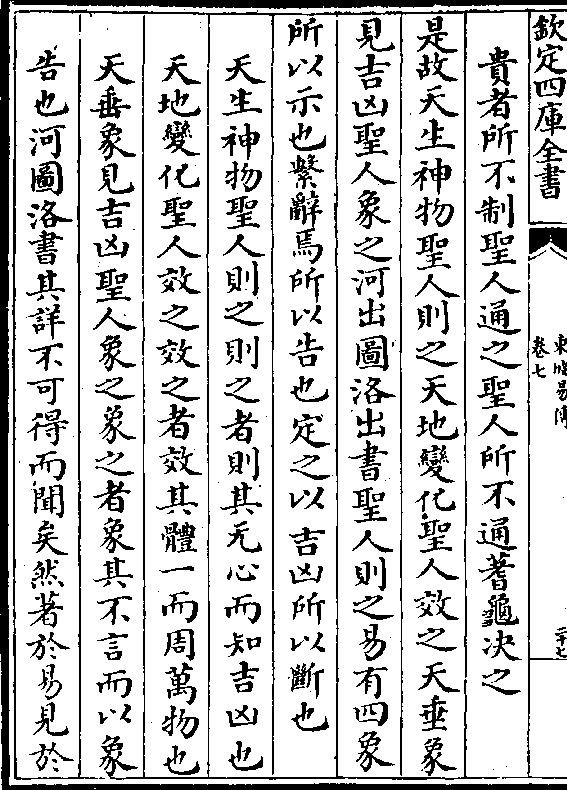 欽定四庫全書
東坡易傳
卷七
二十七
貴者所不制聖人通之聖人所不通蓍龜決之
是故天生神物聖人則之天地變化聖人效之天垂象
見吉凶聖人象之河出圖洛出書聖人則之易有四象
所以示也繫辭焉所以告也定之以吉凶所以斷也
天生神物聖人則之則之者則其无心而知吉凶也
天地變化聖人效之效之者效其體一而周萬物也
天垂象見吉凶聖人象之象之者象其不言而以象
告也河圖洛書其詳不可得而聞矣然著於易見於